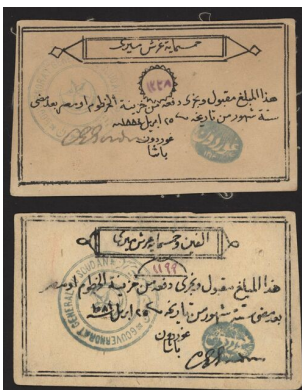 خمسماية غرش ميرى
هذا المبلغ مقبول ويجرى دفعه من خزينة الخرطوم او مصر بعد مضى
ستة شهور من تاريخه ٢٥ ابريل ١٨٨٤
غوردون
باشا
الفين وخمسماية غرش ميرى
هذا المبلغ مقبول ويجرى دفعه من خزينة الخرطوم او مصر
بعد مضى ستة شهور من تاريخه ٢٥ ابريل ١٨٨٤
غوردون
باشا